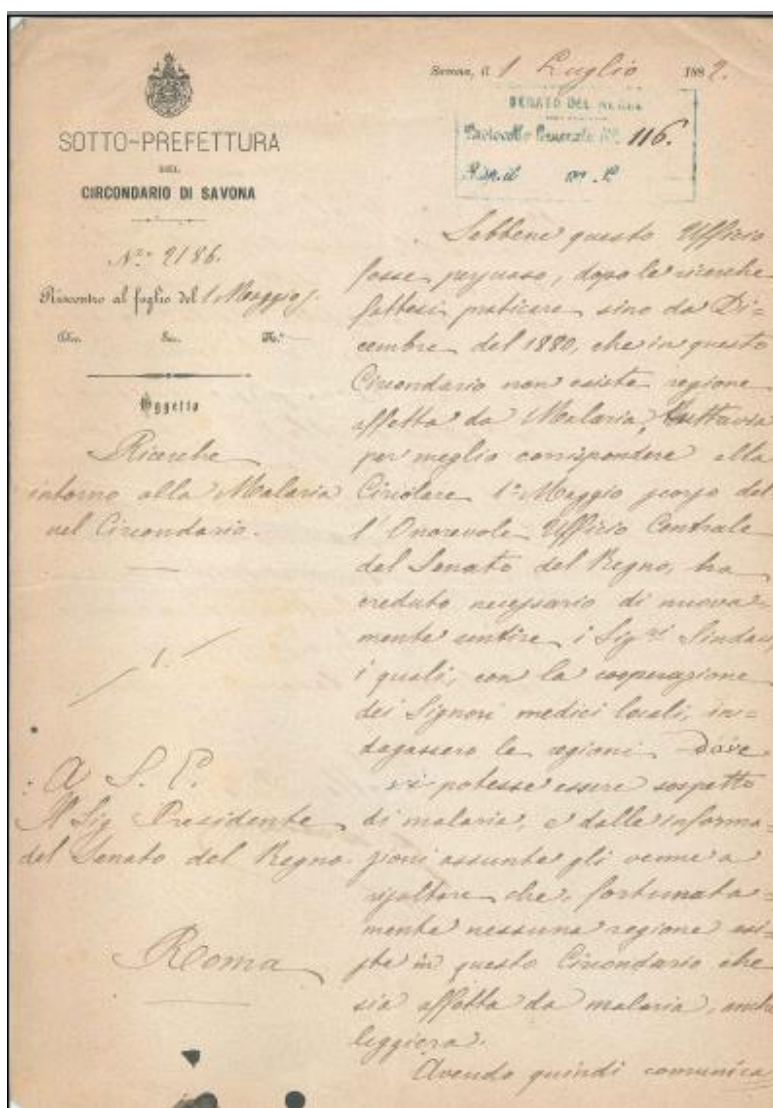 Savona, il 1 Luglio 1882.
SENATO DEL REGNO
Protocollo Generale N.º 116.
SOTTO-PREFETTURA
DEL
CIRCONDARIO DI SAVONA
N.º 2186.
Riscontro al foglio del 1 Maggio
Div. Sez. N.º
Oggetto
Ricerche
intorno alla Malaria
nel Circondario.
1.
A S. E.
Il Sig Presidente
del Senato del Regno
Roma
Sebbene questo Ufficio
fosse persuaso, dopo le ricerche
fattesi praticare sino da Di=
cembre del 1880, che in questo
Circondario non esiste regione
affetta da Malaria, tuttavia
per meglio corrispondere alla
Circolare 1º Maggio scorso del
l'Onorevole Ufficio Centrale
del Senato del Regno, ha
creduto necessario di nuova=
mente sentire i Sigri Sindaci,
i quali, con la cooperazione
dei Signori medici locali, in=
dagassero le regioni dove
vi potesse essere sospetto
di malaria, e dalle informa=
zioni assunte gli venne a
risultare che, fortunata=
mente nessuna regione esi=
ste in questo Circondario che
sia affetta da malaria, anche
leggiera.
Avendo quindi comunica